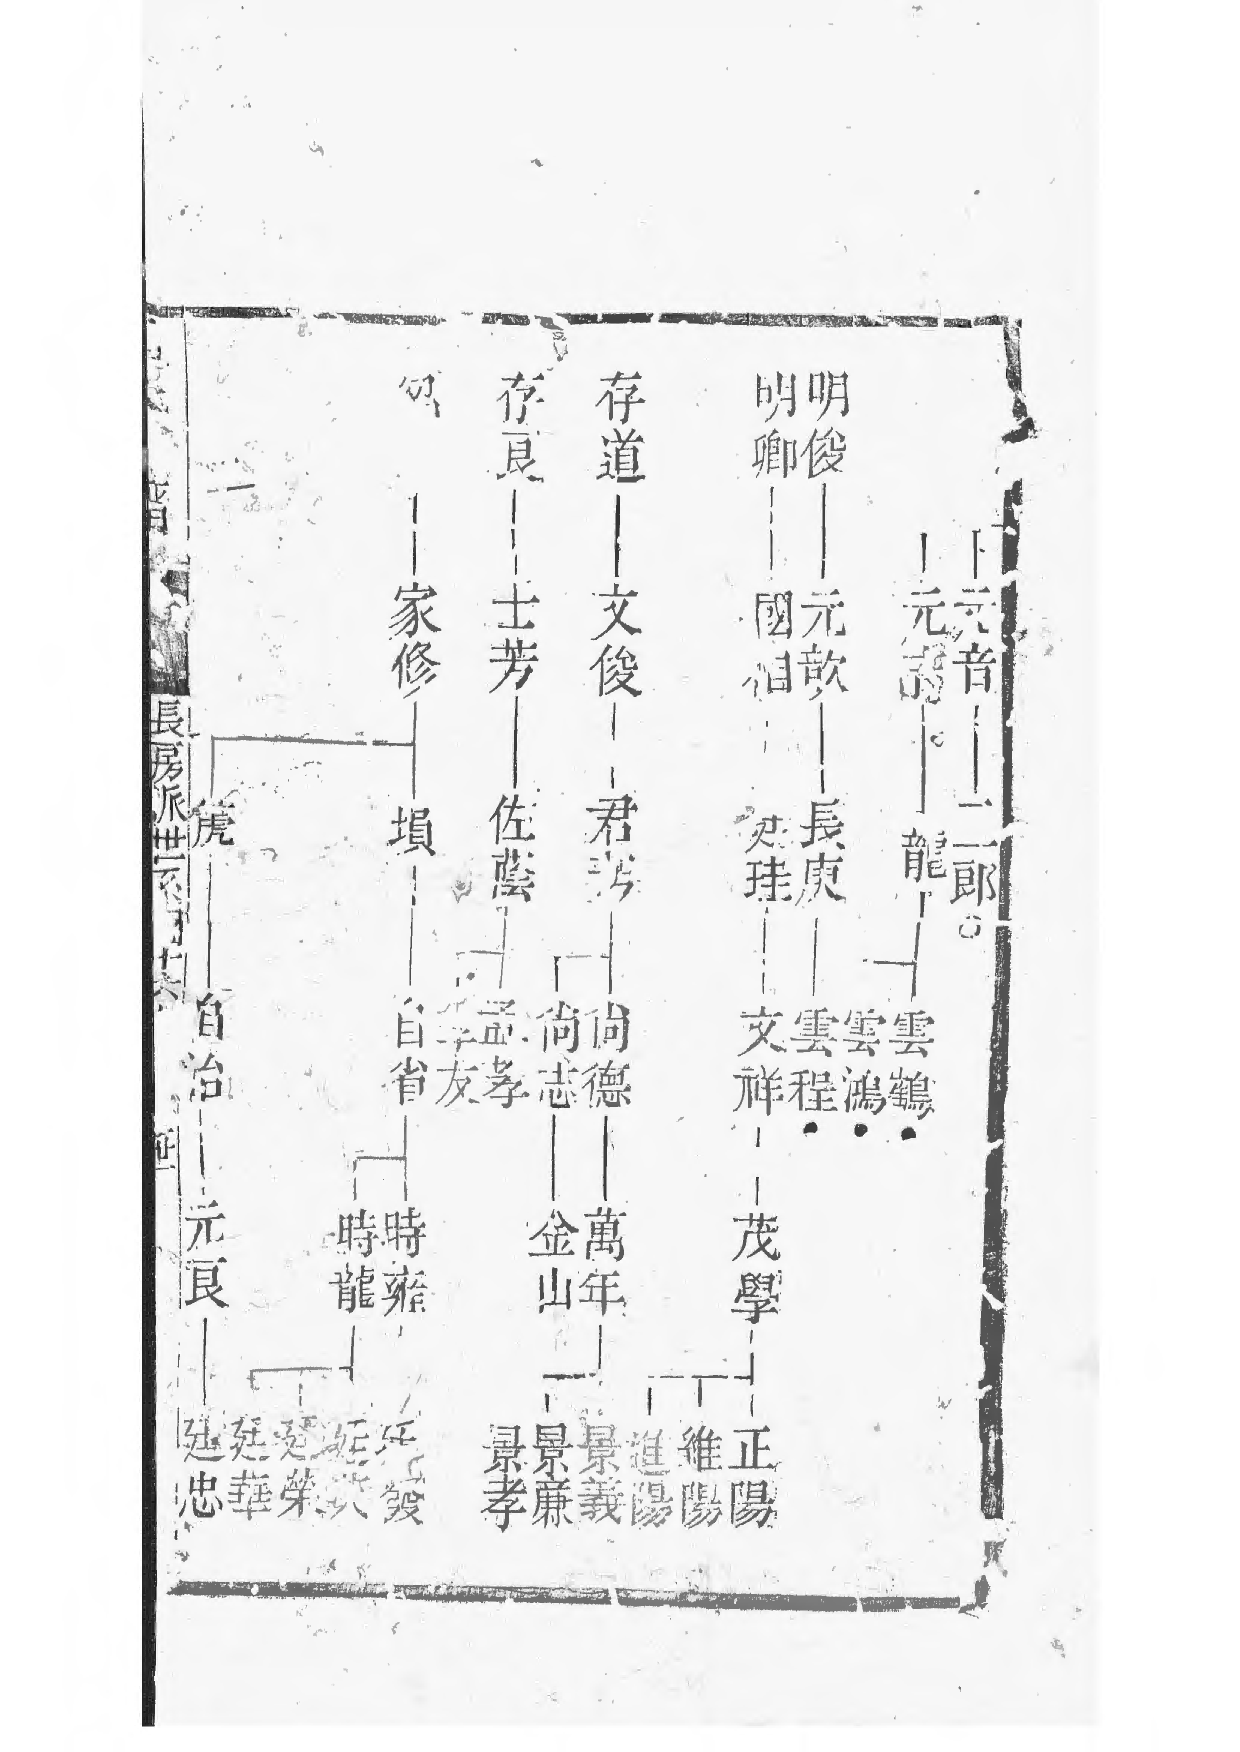 元音
二郎
元
龍
雲鶴
雲鴻
明俊
元歆
長庚
雲程
明卿
國相
珪
文祥
茂學
正陽
維陽
進陽
存道
文俊
君
尙德
萬年
景義
景廉
景孝
尙志
金山
存良
士芳
佐蔭
孟孝
孝友
家修
塤
自省
時雍
發
時龍
廷
廷榮
廷華
箎
自治
元良
廷忠
譜
長房派世系圖